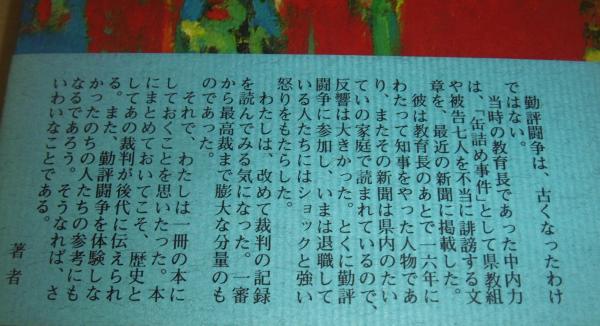 勤評闘争は、古くなったわけ
ではない。
当時の教育長であった中内力
は、「缶詰め事件」として県教組
や被告七人を不当に誹謗する文
章を、最近の新聞に掲載した。
彼は教育長のあとで一六年に
わたって知事をやった人物であ
り、またその新聞は県内のたい
ていの家庭で読まれているので、
反響は大きかった。とくに勤評
闘争に参加し、いまは退職して
いる人たちにはショックと強い
怒りをもたらした。
わたしは、改めて裁判の記録
を読んでみる気になった。一審
から最高裁まで膨大な分量のも
のであった。
それで、わたしは一冊の本に
しておくことを思いたった。本
にまとめておいてこそ、歴史と
してあの裁判が後代に伝えられ
る。また、勤評闘争を体験しな
かったのちの人たちの参考にも
なるであろう。そうなれば、さ
いわいなことである。
著者